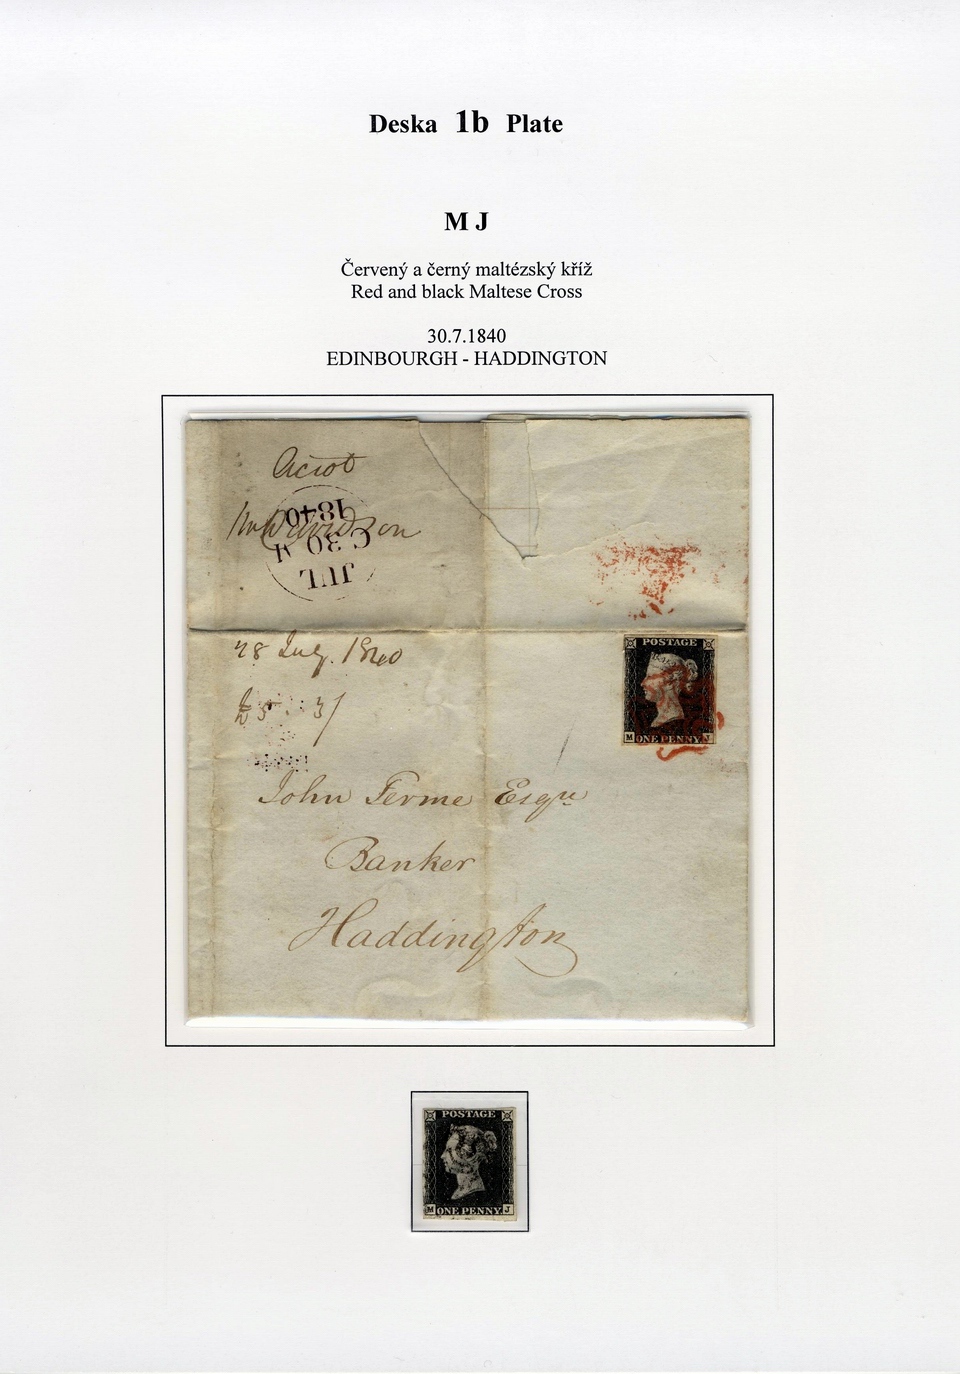 Deska 1b Plate
M J
Červený a černý maltézský kříž
Red and black Maltese Cross
30.7.1840
EDINBOURGH - HADDINGTON
JUL
C 30 M
1840
28 July. 1840
£5 3/
John Ferme Esqre
Banker
Haddington
POSTAGE
M ONE PENNY J
POSTAGE
M ONE PENNY J